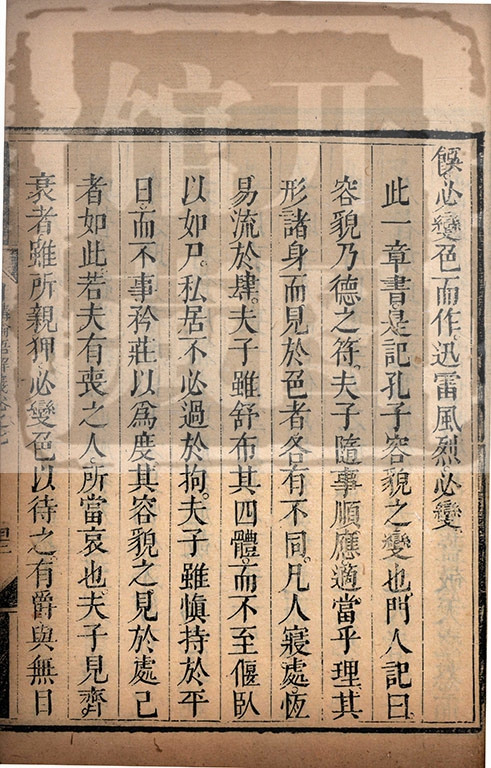 饌必變色而作迅雷風烈必變
此一章書是記孔子容貌之變也門人記曰
容貌乃德之符夫子隨事順應適當乎理其
形諸身而見於色者各有不同凡人寢處恆
易流於肆夫子雖舒布其四體而不至偃臥
以如尸私居不必過於拘夫子雖慎持於平
日而不事矜莊以為度其容貌之見於處己
者如此若夫有喪之人所當哀也夫子見齊
衰者雖所親狎必變色以待之有爵與無目